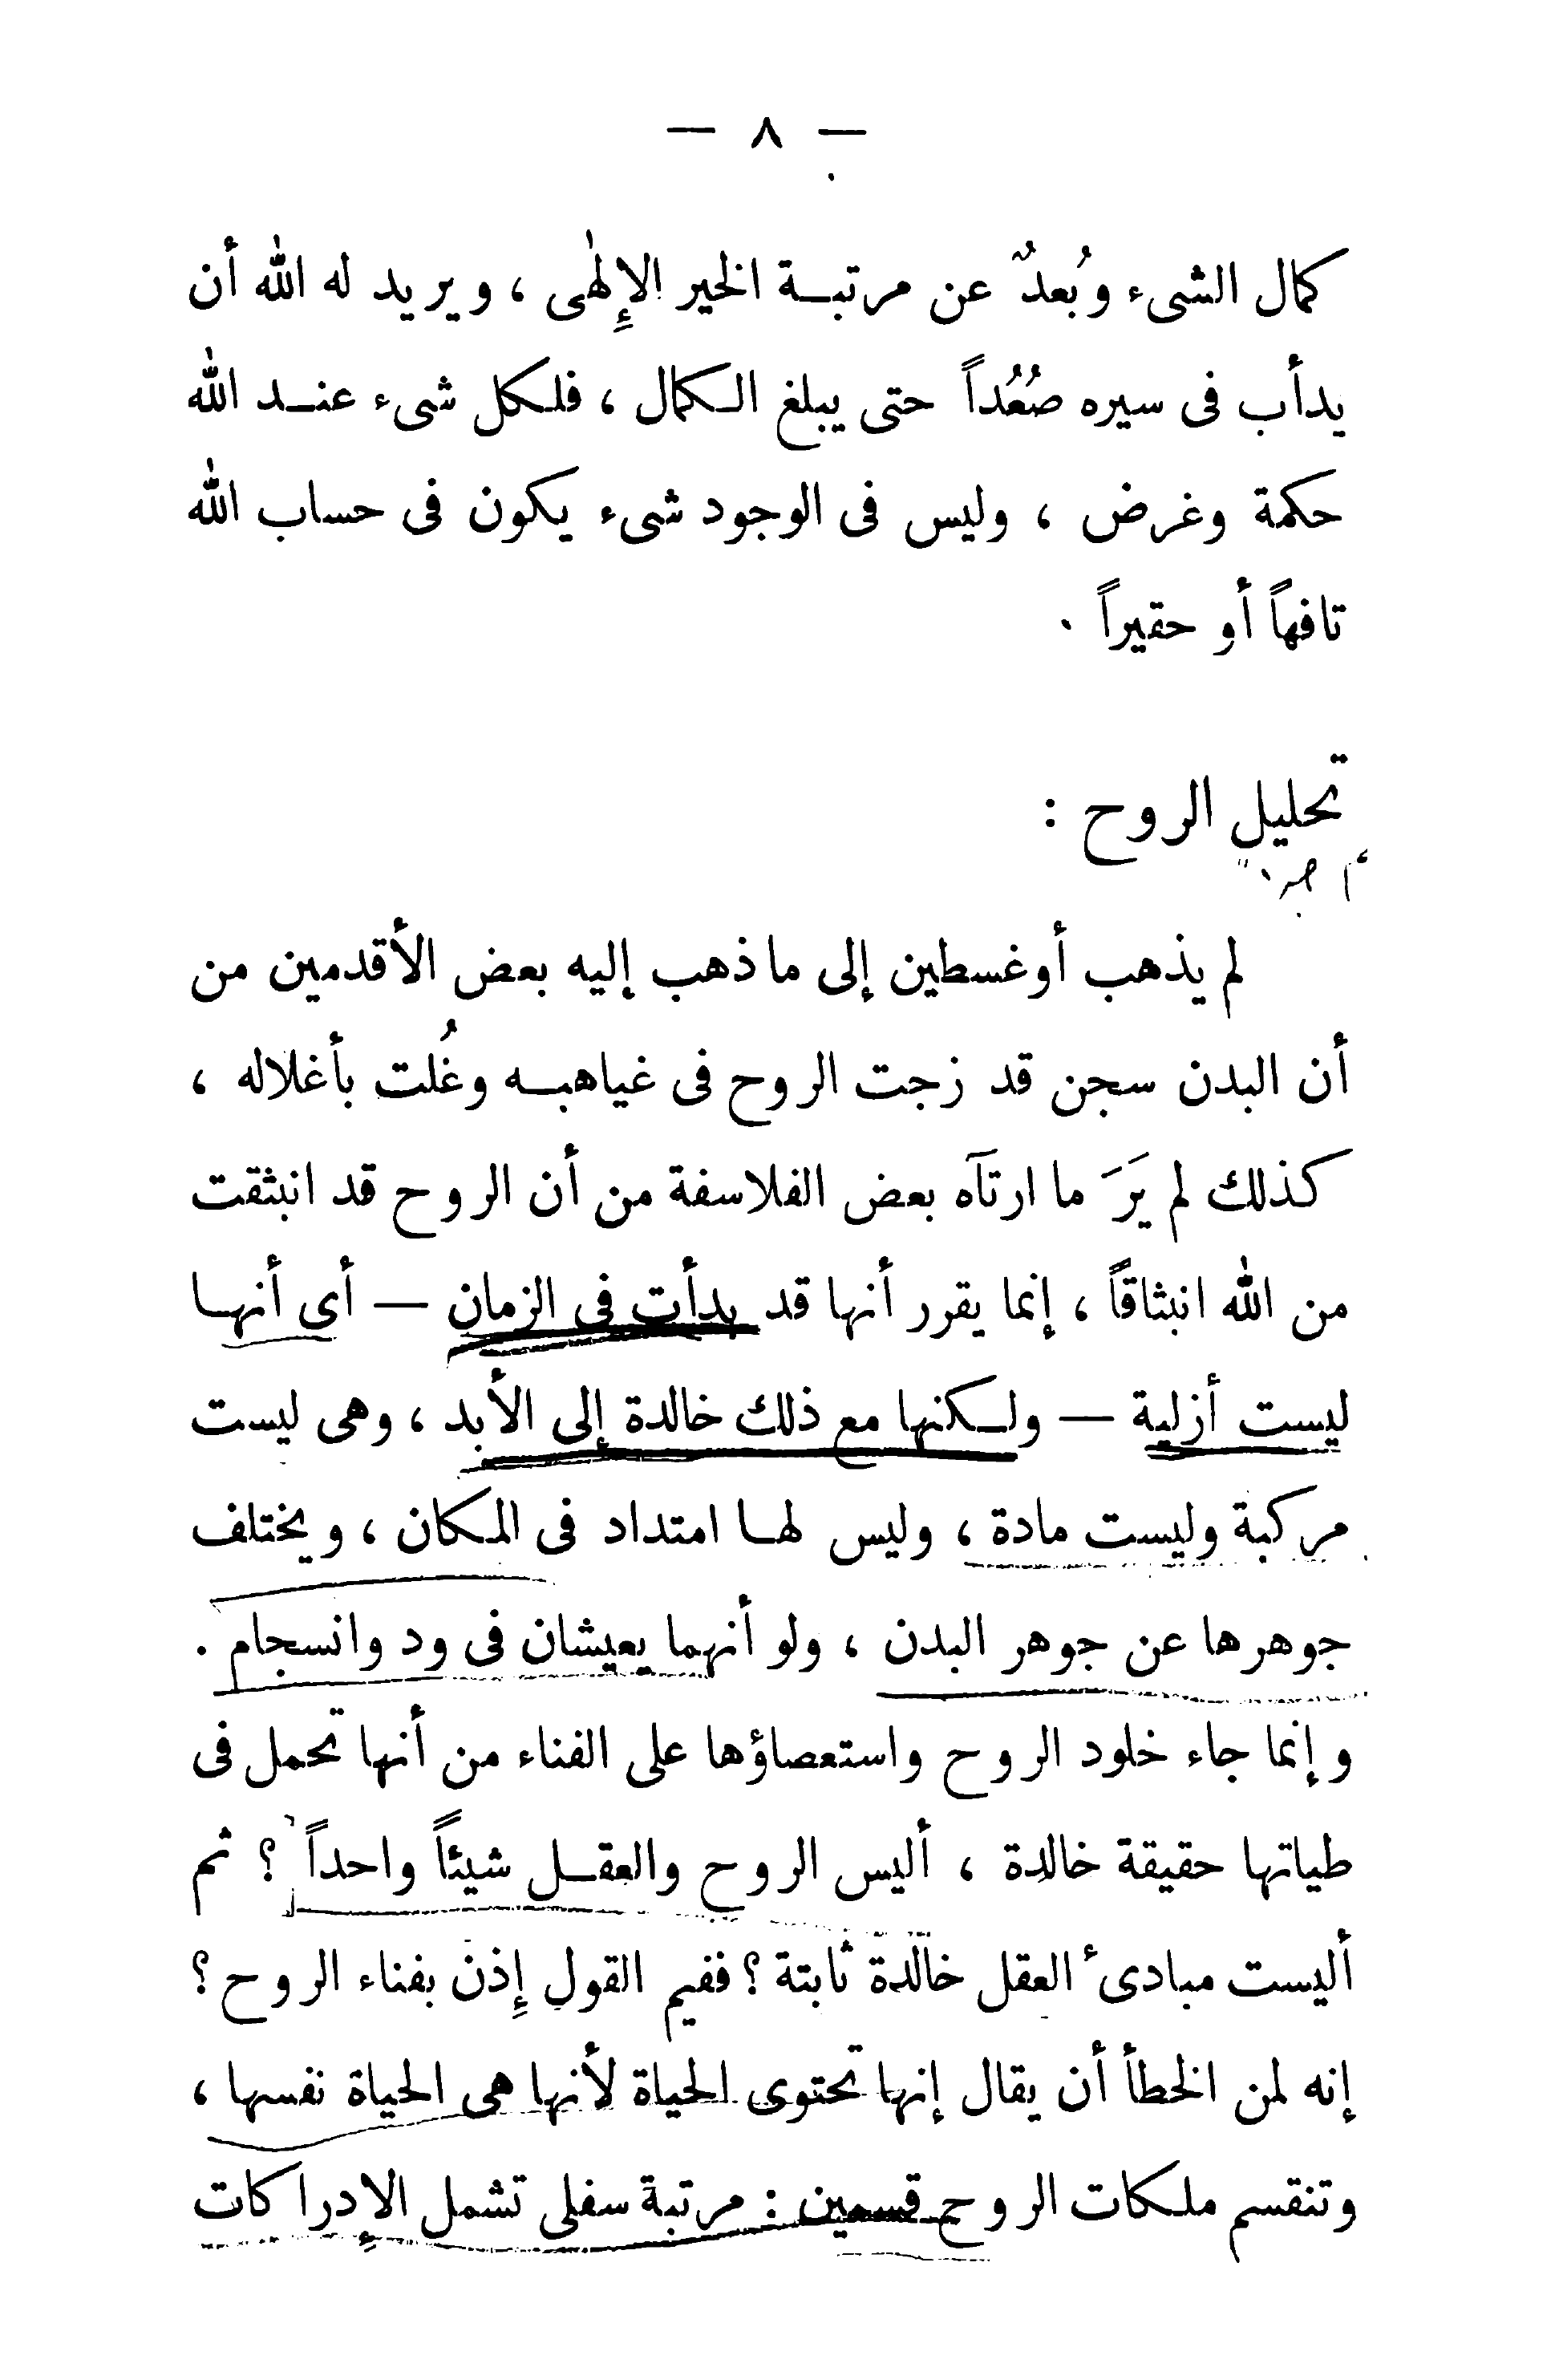 — ٨ —
كمال الشىء وبُعدٌ عن مرتبة الخير الإلٰهى ، ويريد له الله أن
يدأب فى سيره صُعُداً حتى يبلغ الكمال ، فلكل شىء عند الله
حكمة وغرض ، وليس فى الوجود شىء يكون فى حساب الله
تافهاً أو حقيراً .
تحليل الروح :
لم يذهب أوغسطين إلى ما ذهب إليه بعض الأقدمين من
أن البدن سجن قد زجت الروح فى غياهبه وغُلت بأغلاله ،
كذلك لم يَرَ ما ارتآه بعض الفلاسفة من أن الروح قد انبثقت
من الله انبثاقاً ، إنما يقرر أنها قد بدأت فى الزمان — أى أنها
ليست أزلية — ولكنها مع ذلك خالدة إلى الأبد ، وهى ليست
مركبة وليست مادة ، وليس لها امتداد فى المكان ، ويختلف
جوهرها عن جوهر البدن ، ولو أنهما يعيشان فى ود وانسجام .
وإنما جاء خلود الروح واستعصاؤها على الفناء من أنها تحمل فى
طياتها حقيقة خالدة ، أليس الروح والعقل شيئاً واحداً ؟ ثم
أليست مبادئ العقل خالدة ثابتة ؟ ففيم القول إِذن بفناء الروح ؟
إنه لمن الخطأ أن يقال إنها تحتوى الحياة لأنها هى الحياة نفسها ،
وتنقسم ملكات الروح قسمين : مرتبة سفلى تشمل الإدراكات